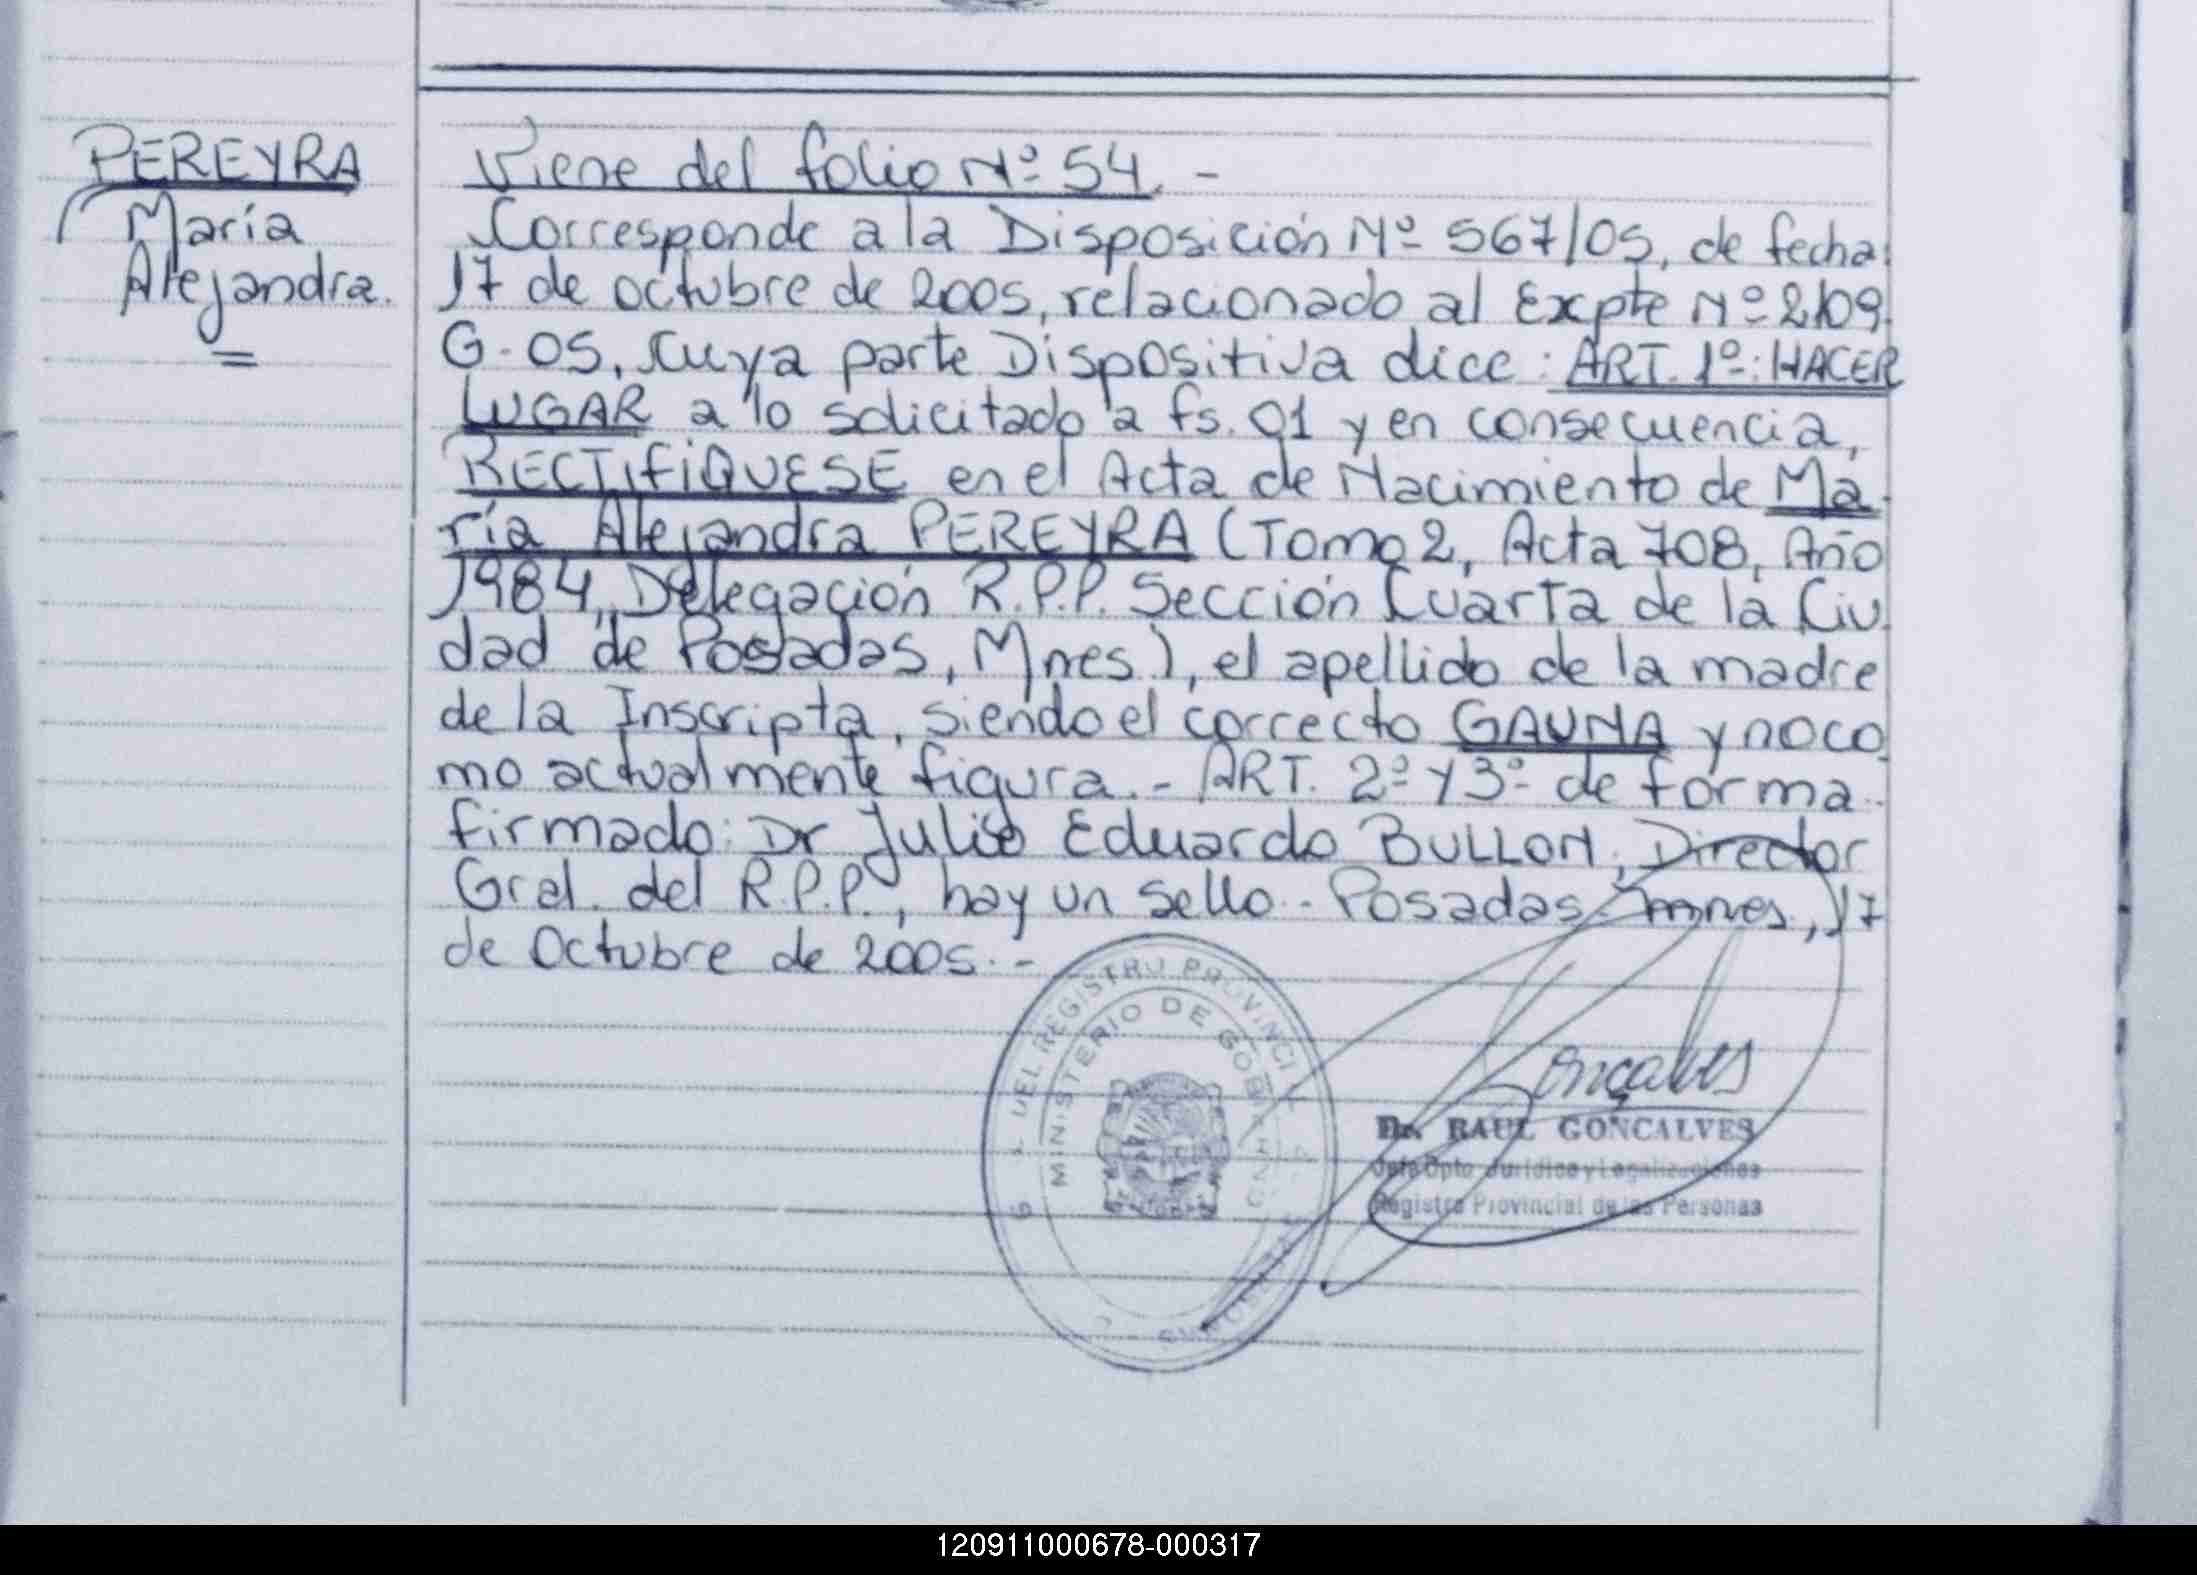 PEREYRA
María
Alejandra.
Viene del folio Nº 54. -
Corresponde a la Disposición Nº 567/05, de fecha
17 de octubre de 2005, relacionado al Expte Nº 2109
G-05, cuya parte Dispositiva dice: ART. 1º: HACER
LUGAR a lo solicitado a fs. 01 y en consecuencia,
RECTIFIQUESE en el Acta de Nacimiento de Ma
ría Alejandra PEREYRA (Tomo 2, Acta 708, Año
1984, Delegación R.P.P. Sección Cuarta de la Ciu
dad de Posadas, Mnes.), el apellido de la madre
de la Inscripta, siendo el correcto GAUNA y no co
mo actualmente figura.- ART. 2º y 3º de forma.
firmado: Dr Julio Eduardo BULLON, Director
Gral. del R.P.P., hay un sello.- Posadas, mnes., 17
de Octubre de 2005.-
DEL REGISTRO PROVINCIAL
MINISTERIO DE GOBIERNO
Gonçalves
Dr. RAUL GONCALVES
Jefe Dpto Jurídico y Legalizaciones
Registro Provincial de las Personas
120911000678-000317